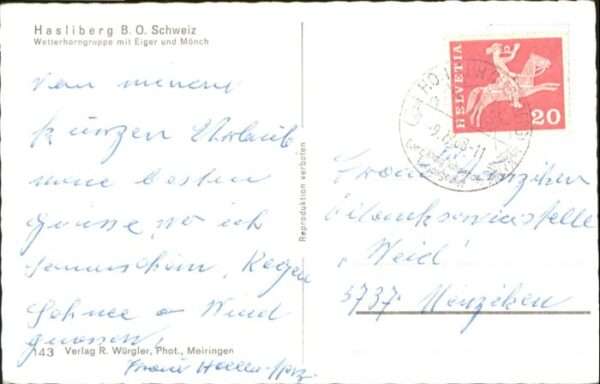 Hasliberg B. O. Schweiz
Wetterhorngruppe mit Eiger und Mönch
von meinem
kurzen Uhrlaub
meine besten
grüsse, wo ich
sonnenschein, Regen
Schnee & Wind
genossen!
143 Verlag R. Würgler, Phot., Meiringen
Reproduktion verboten
HELVETIA
20
Frau
"Weid"
5737 Menziken